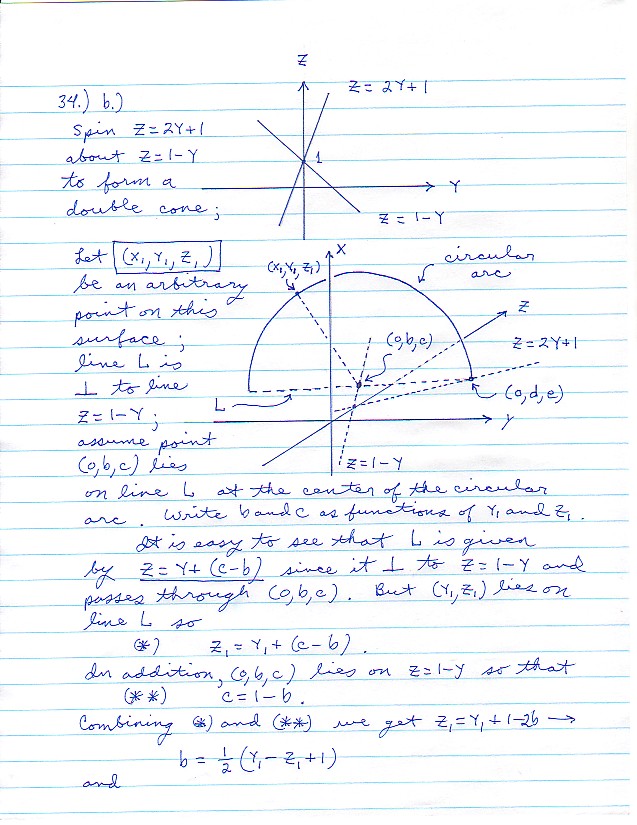 Z
34.) b.)
Z = 2Y+1
Spin Z=2Y+1
about Z=1-Y
1
to form a
Y
double cone;
Z = 1-Y
Let (X₁, Y₁, Z₁)
X
circular
arc
(X₁, Y₁, Z₁)
be an arbitrary
point on this
Z
surface;
(0,b,c)
Z=2Y+1
line L is
⊥ to line
L
(0,d,e)
Z=1-Y;
Y
assume point
(0,b,c) lies
Z=1-Y
on line L at the center of the circular
arc. Write b and c as functions of Y₁ and Z₁.
It is easy to see that L is given
by Z=Y+(c-b) since it ⊥ to Z=1-Y and
passes through (0,b,c). But (Y₁,Z₁) lies on
line L so
(*) Z₁=Y₁+(c-b).
In addition, (0,b,c) lies on Z=1-Y so that
(**) c=1-b.
Combining (*) and (**) we get Z₁=Y₁+1-2b →
b = ½(Y₁-Z₁+1)
and